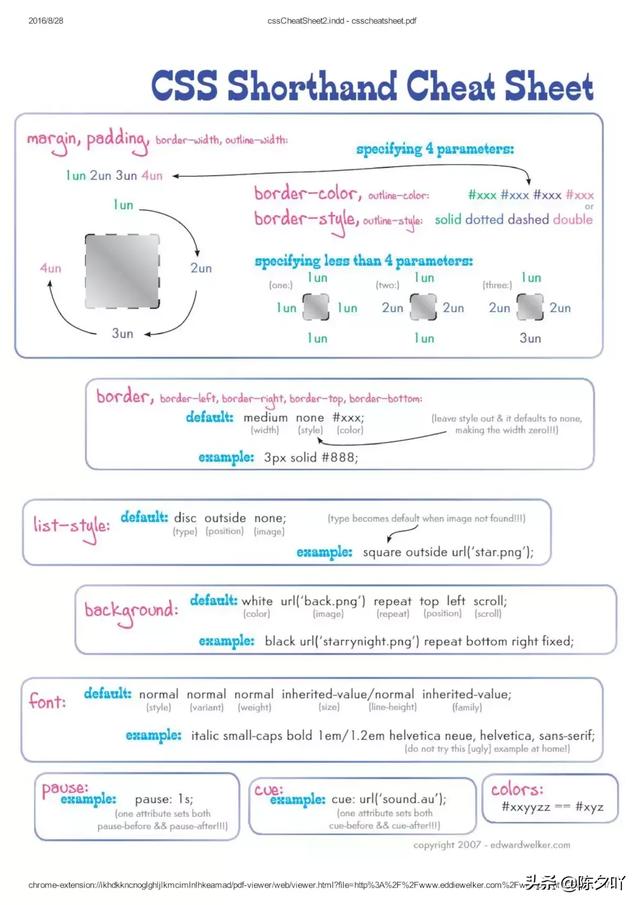 2016/8/28 cssCheatSheet2.indd - csscheatsheet.pdf
CSS Shorthand Cheat Sheet
margin, padding, border-width, outline-width:
specifying 4 parameters:
1un 2un 3un 4un
border-color, outline-color: #xxx #xxx #xxx #xxx
or
border-style, outline-style: solid dotted dashed double
1un
4un 2un
3un
specifying less than 4 parameters:
(one:) 1un
1un 1un
1un
(two:) 1un
2un 2un
1un
(three:) 1un
2un 2un
3un
border, border-left, border-right, border-top, border-bottom:
default: medium none #xxx;
(width) (style) (color)
(leave style out & it defaults to none,
making the width zero!!!)
example: 3px solid #888;
list-style: default: disc outside none;
(type) (position) (image)
(type becomes default when image not found!!!)
example: square outside url('star.png');
background: default: white url('back.png') repeat top left scroll;
(color) (image) (repeat) (position) (scroll)
example: black url('starrynight.png') repeat bottom right fixed;
font: default: normal normal normal inherited-value/normal inherited-value;
(style) (variant) (weight) (size) (line-height) (family)
example: italic small-caps bold 1em/1.2em helvetica neue, helvetica, sans-serif;
(do not try this [ugly] example at home!)
pause:
example: pause: 1s;
(one attribute sets both
pause-before && pause-after!!!)
cue:
example: cue: url('sound.au');
(one attribute sets both
cue-before && cue-after!!!)
colors:
#xxyyzz == #xyz
copyright 2007 - edwardwelker.com
头条 @陈夕吖